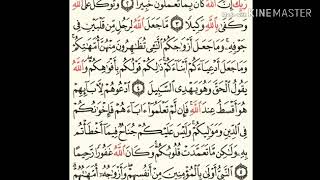 Made With KINEMASTER
رَبِّكَ إِنَّ اللَّهَ كَانَ بِمَا تَعْمَلُونَ خَبِيرًا ٢ وَتَوَكَّلْ عَلَى اللَّهِ
وَكَفَىٰ بِاللَّهِ وَكِيلًا ٣ مَا جَعَلَ اللَّهُ لِرَجُلٍ مِنْ قَلْبَيْنِ فِي
جَوْفِهِ وَمَا جَعَلَ أَزْوَاجَكُمُ اللَّائِي تُظَاهِرُونَ مِنْهُنَّ أُمَّهَاتِكُمْ
وَمَا جَعَلَ أَدْعِيَاءَكُمْ أَبْنَاءَكُمْ ذَٰلِكُمْ قَوْلُكُمْ بِأَفْوَاهِكُمْ وَاللَّهُ
يَقُولُ الْحَقَّ وَهُوَ يَهْدِي السَّبِيلَ ٤ ادْعُوهُمْ لِآبَائِهِمْ
هُوَ أَقْسَطُ عِنْدَ اللَّهِ فَإِنْ لَمْ تَعْلَمُوا آبَاءَهُمْ فَإِخْوَانُكُمْ
فِي الدِّينِ وَمَوَالِيكُمْ وَلَيْسَ عَلَيْكُمْ جُنَاحٌ فِيمَا أَخْطَأْتُمْ
بِهِ وَلَٰكِنْ مَا تَعَمَّدَتْ قُلُوبُكُمْ وَكَانَ اللَّهُ غَفُورًا رَحِيمًا
٥ النَّبِيُّ أَوْلَىٰ بِالْمُؤْمِنِينَ مِنْ أَنْفُسِهِمْ وَأَزْوَاجُهُ أُمَّهَاتُهُمْ